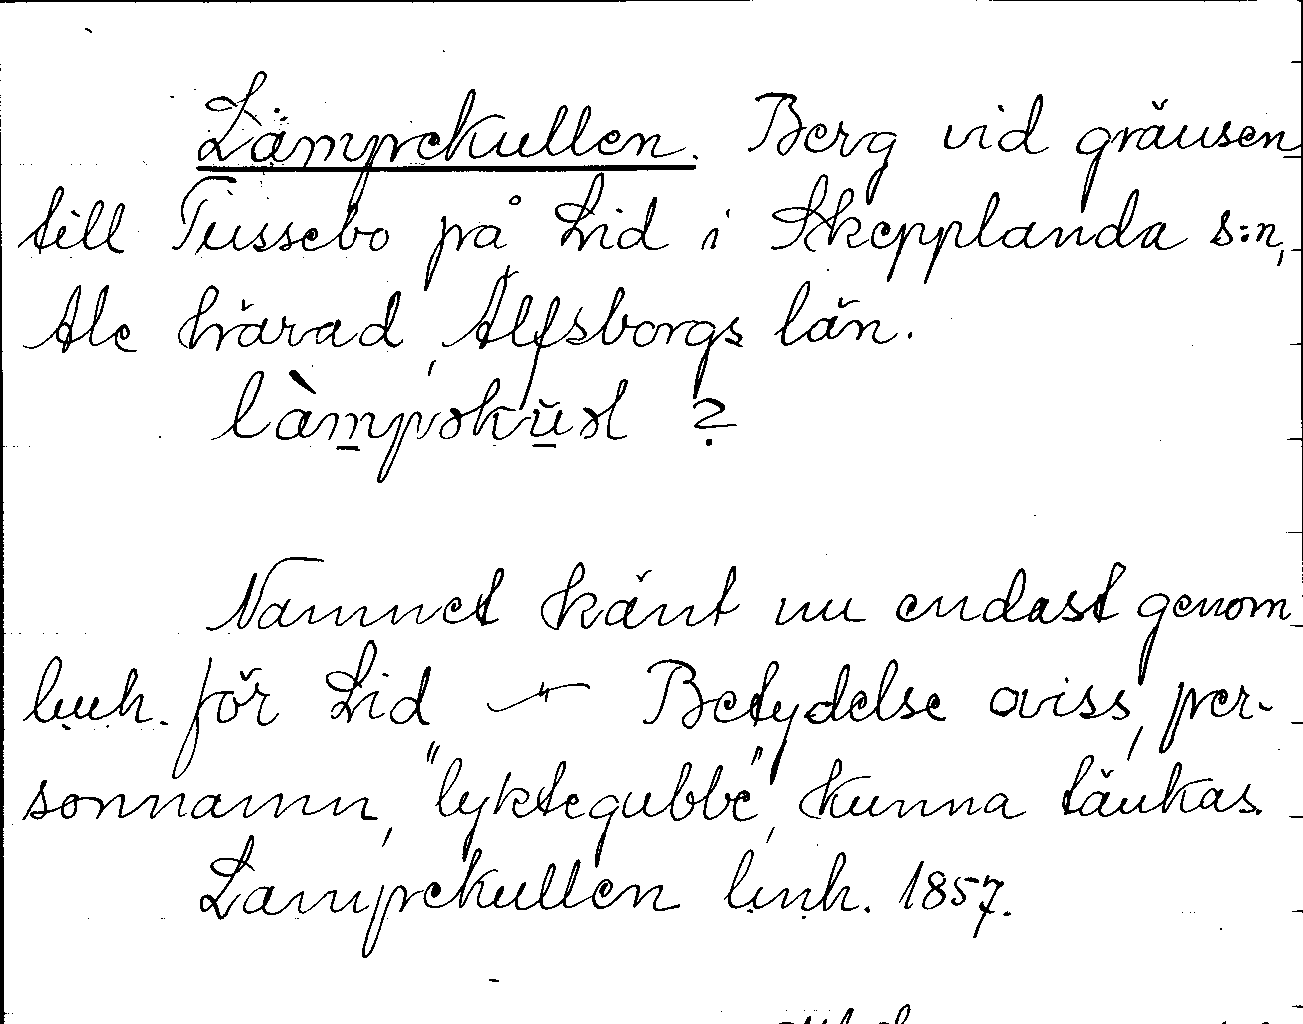 Lampekullen. Berg vid gränsen
till Tussebo på Lid i Skepplanda s:n,
Ale härad, Älfsborgs län.
làmpəkŭəl ?
Namnet känt nu endast genom
lmh. för Lid — Betydelse oviss, per-
sonnamn, "lyktegubbe", kunna tänkas.
Lampekullen lmh. 1857.